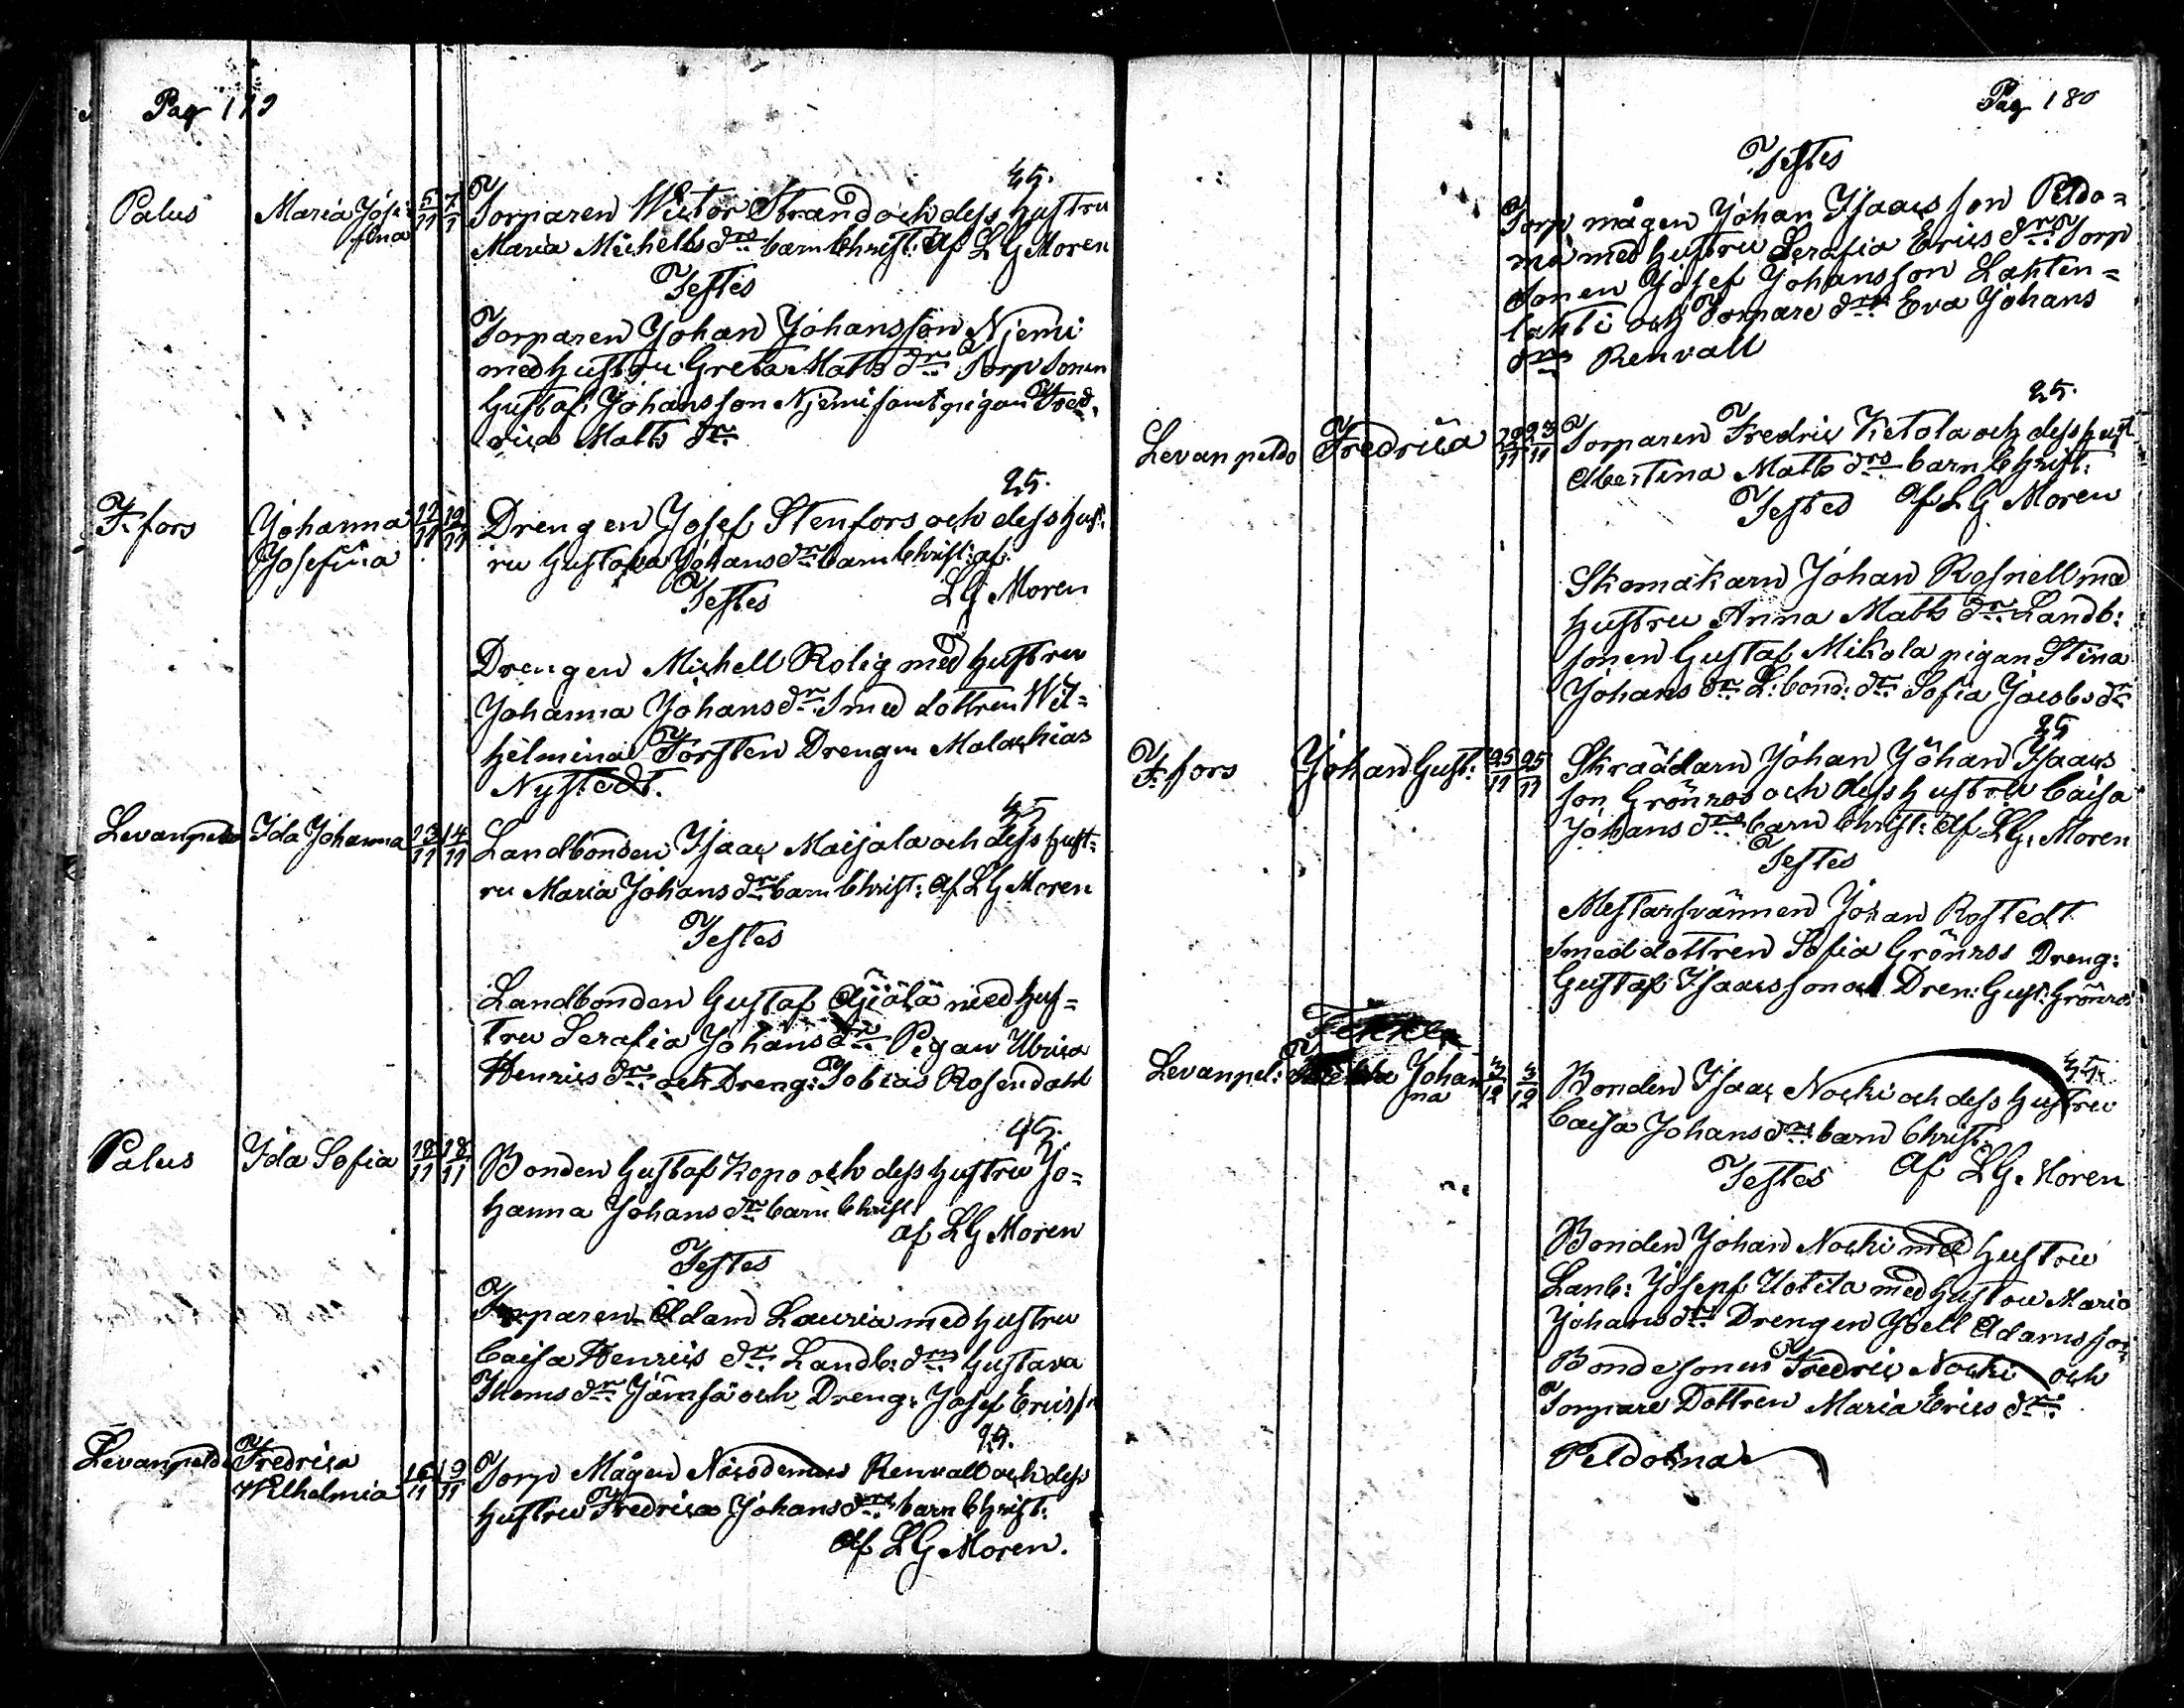 Pag 179
35.
Palus Maria Josefina 5/11 7/11 Torparen Wictor Strand och dess hustru
Maria Michells dr. barn Christ: Af LG Moren
Testes
Torparen Johan Johansson Njemi
med hustru Greta Matts dr. Torp Sonen
Gustaf Johansson Njemi samt pigan Fred-
rica Matts dr.
25.
F. fors Johanna Josefina 12/11 12/11 Drengen Josef Stenfors och dess hust:
ru Gustava Johans dr. barn Christ: af:
Testes LG Moren
Drengen Michell Rolig med hustru
Johanna Johans dr. Smed dottren Wil=
helmina Torsten Drengen Malachias
Nystedt.
35
Levanpeldo Ida Johanna 13/11 14/11 Landbonden Isaac Maijala och dess hust:
ru Maria Johans dr. barn Christ: Af LG Moren
Testes
Landbonden Gustaf Äjälä med hus=
tru Serafia Johans dr. Pigan Ulrica
Henrics dr. och Dreng: Tobias Rosendahl
45.
Palus Ida Sofia 18/11 18/11 Bonden Gustaf Kopo och dess hustru Jo=
hanna Johans dr. barn Christ
af LG Moren
Testes
Torparen Adam Lauria med hustru
Caisa Henrics dr. Landb: drn Gustava
Thoms dr. Jämsä och Dreng: Josef Ericss
25.
Levanpeldo Fredrica Wilhelmia 16/11 19/11 Torp Mågen Nicodemus Renvall och dess
hustru Fredrica Johans drs barn Christ:
Af LG Moren.
Pag 180
Testes
Torp mågen Johan Isaacsson Peldo=
ma med hustru Serafia Erics dr. Torp
Sonen Josef Johansson Lahten=
lahti och Torpare drn Eva Johans
dr. Renvall
25.
Levanpeldo Fredrica 22/11 23/11 Torparen Fredric Ketola och dess hust
Albertina Matts drs barn Christ:
Testes Af LG Moren
Skomakarn Johan Rosnell med
hustru Anna Matts dr. Landb:
sonen Gustaf Mikola pigan Stina
Johans dr. L: bond: dr. Sofia Jacobs dr
25
F. fors Johan Gust: 25/11 25/11 Skräddarn Johan Johan Isaacs
son Grönros och dess hustru Caisa
Johans drs barn Christ: Af LG: Moren
Testes
Mestarsvännen Johan Rostedt
smed dottren Sofia Grönros Dreng:
Gustaf Isaacsson och Dren: Gust: Grönros
35.
Levanpel: Johanna 3/12 3/12 Bonden Isaac Nocki och dess hustru
Caisa Johans drs barn Christ:
Testes Af LG. Moren
Bonden Johan Nocki med hustru
Lanb: Josepf Uotila med hustru Maria
Johans dr. Drengen Joell Adamsson
Bondesonen Fredric Nocki och
Torpare Dottren Maria Erics dr.
Peldoma